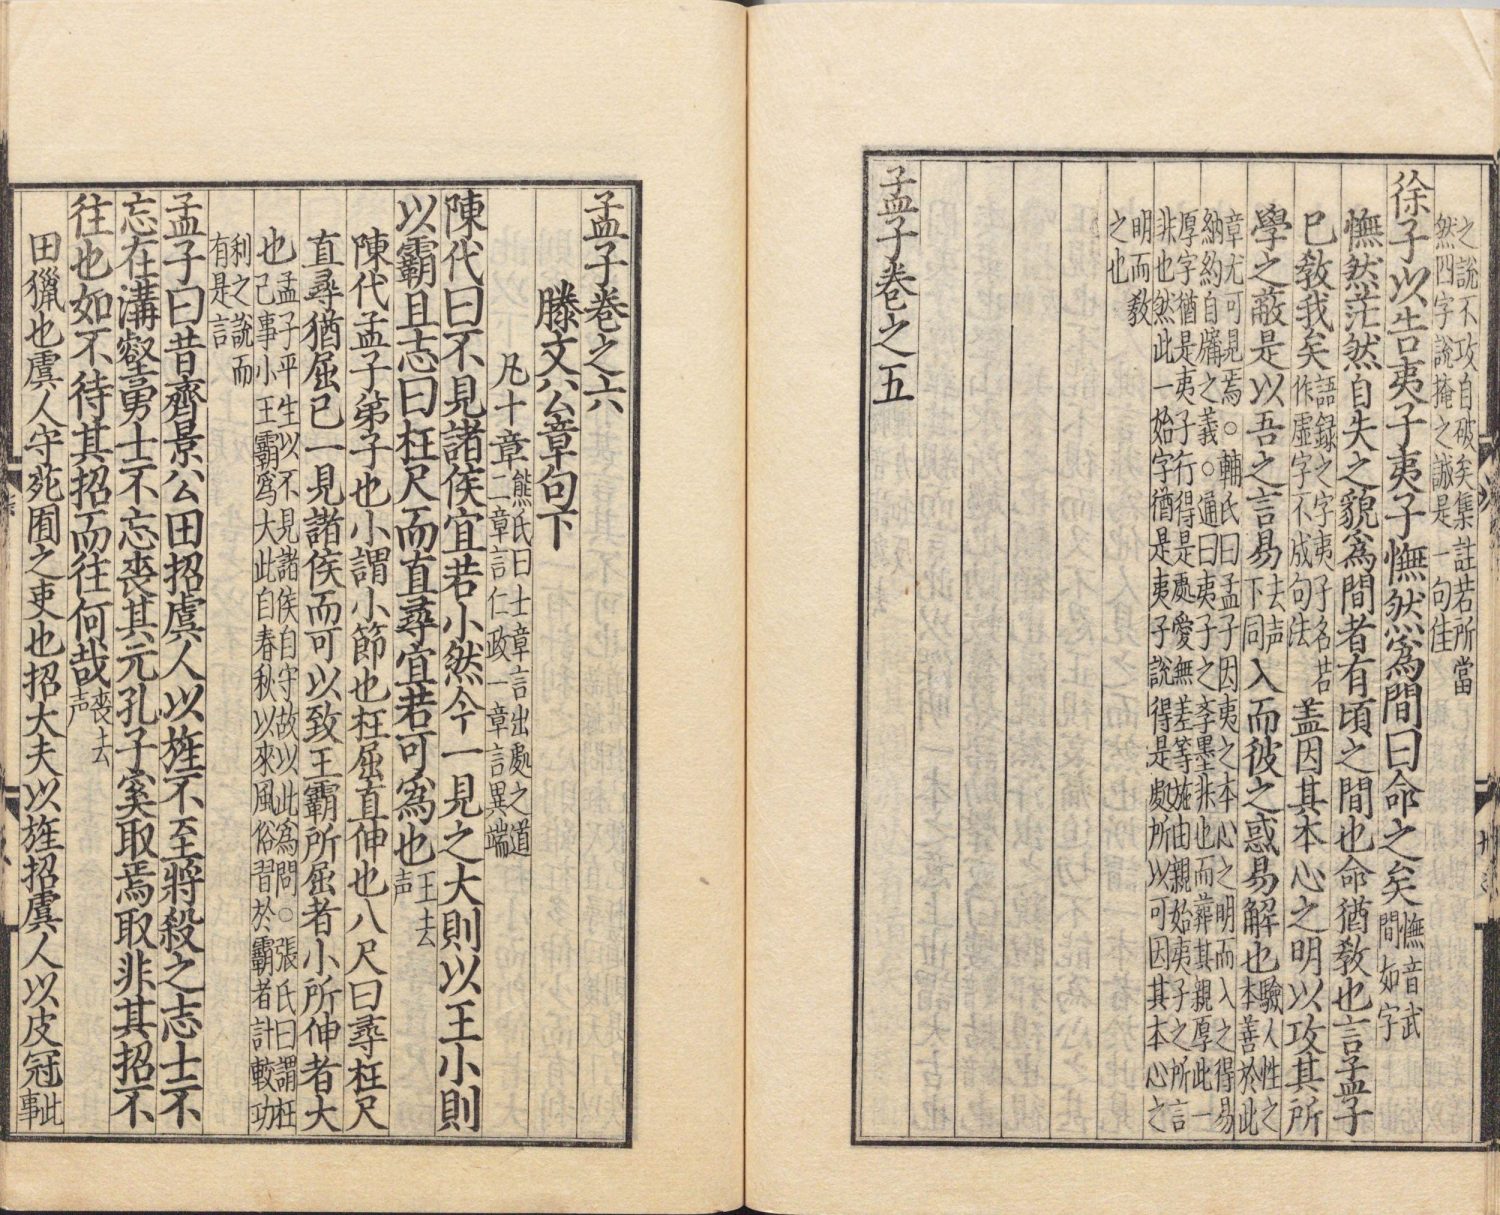 之說不攻自破矣集註若所當
然四字說掩之誠是一句佳
徐子以告夷子夷子憮然爲間曰命之矣憮音武間如字
憮然茫然自失之貌爲間者有頃之間也命猶教也言孟子
已教我矣語録之字夷子名若作虛字不成句法蓋因其本心之明以攻其所
學之蔽是以吾之言易去声下同入而彼之惑易解也驗人性之本善於此
章尤可見焉○輔氏曰孟子因夷之本心之明而入之得易
納約自牖之義○通曰夷子之學墨非也而葬其親厚此一
厚字猶是夷子行得是處愛無差等施由親始夷子之所言
非也然此一始字猶是夷子說得是處所以可因其本心之
明而教
之也
孟子卷之五
孟子卷之六
滕文公章句下
凡十章熊氏曰士章言出處之道二章言仁政一章言異端
陳代曰不見諸侯宜若小然今一見之大則以王小則
以霸且志曰枉尺而直尋宜若可爲也王去声
陳代孟子弟子也小謂小節也枉屈直伸也八尺曰尋枉尺
直尋猶屈己一見諸侯而可以致王霸所屈者小所伸者大
也孟子平生以不見諸侯自守故以此爲問○張氏曰謂枉
己事小王霸爲大此自春秋以來風俗習於霸者計較功
利之說而
有是言
孟子曰昔齊景公田招虞人以旌不至將殺之志士不
忘在溝壑勇士不忘喪其元孔子奚取焉取非其招不
往也如不待其招而往何哉喪去声
田獵也虞人守苑囿之吏也招大夫以旌招虞人以皮冠此事